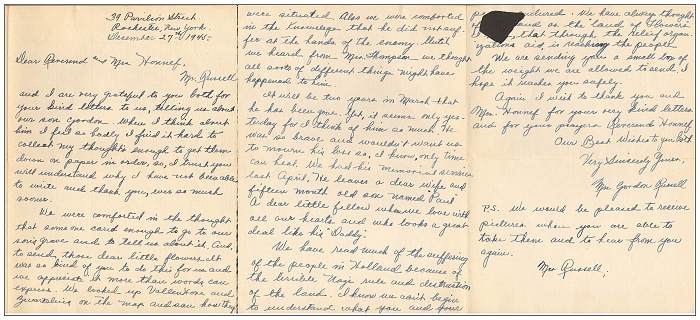 39 Pavilion Street
Rochester, New York.
December 27th/1945.
Dear Reverend and Mrs Honnef.
Mr. Russell
and I are very grateful to you both for
your kind letters to us, telling us about
our son Gordon. When I think about
him I feel so badly I find it hard to
collect my thoughts enough to get them
down on paper in order, so, I trust you
will understand why I have not been able
to write and thank you, ever so much
sooner.
We were comforted in the thought
that some one cared enough to go to our
son's grave and to tell us about it. And,
to send those dear little flowers. It
was so kind of you to do this for us and
we appreciate it more than words can
express. We looked up Vollenhove and
Zwartsluis on the map and saw how they
were situated. Also we were comforted
in the knowledge that he did not suf-
fer at the hands of the enemy. Until
we heard from Mrs. Thompson we thought
all sorts of different things might have
happened to him.
It will be two years in March that
he has been gone. Yet, it seems only yes-
terday for I think of him so much. He
was so brave and wouldn't want us
to mourn his loss so, I know, only time
can heal. We had his memorial service
last April. He leaves a dear wife and
fifteen month old son named Paul.
A dear little fellow whom we love with
all our hearts and who looks a great
deal like his "Daddy".
We have read much of the suffering
of the people in Holland because of
the terrible Nazi rule and destruction
of the land. I know we can't begin
to understand what you and your
people endured. We have always thought
of Holland as the land of flowers.
that through the relief organ-
izations aid, is reaching the people
We are sending you a small box of
the weight we are allowed to send. I
hope it reaches you safely.
Again I wish to thank you and
Mrs. Honnef for your very kind letters
and for your prayers Reverend Honnef.
Our Best Wishes to you both
Very Sincerely Yours,
Mrs Gordon Russell
P.S. We would be pleased to receive
pictures when you are able to
take them and to hear from you
again.
Mrs Russell,